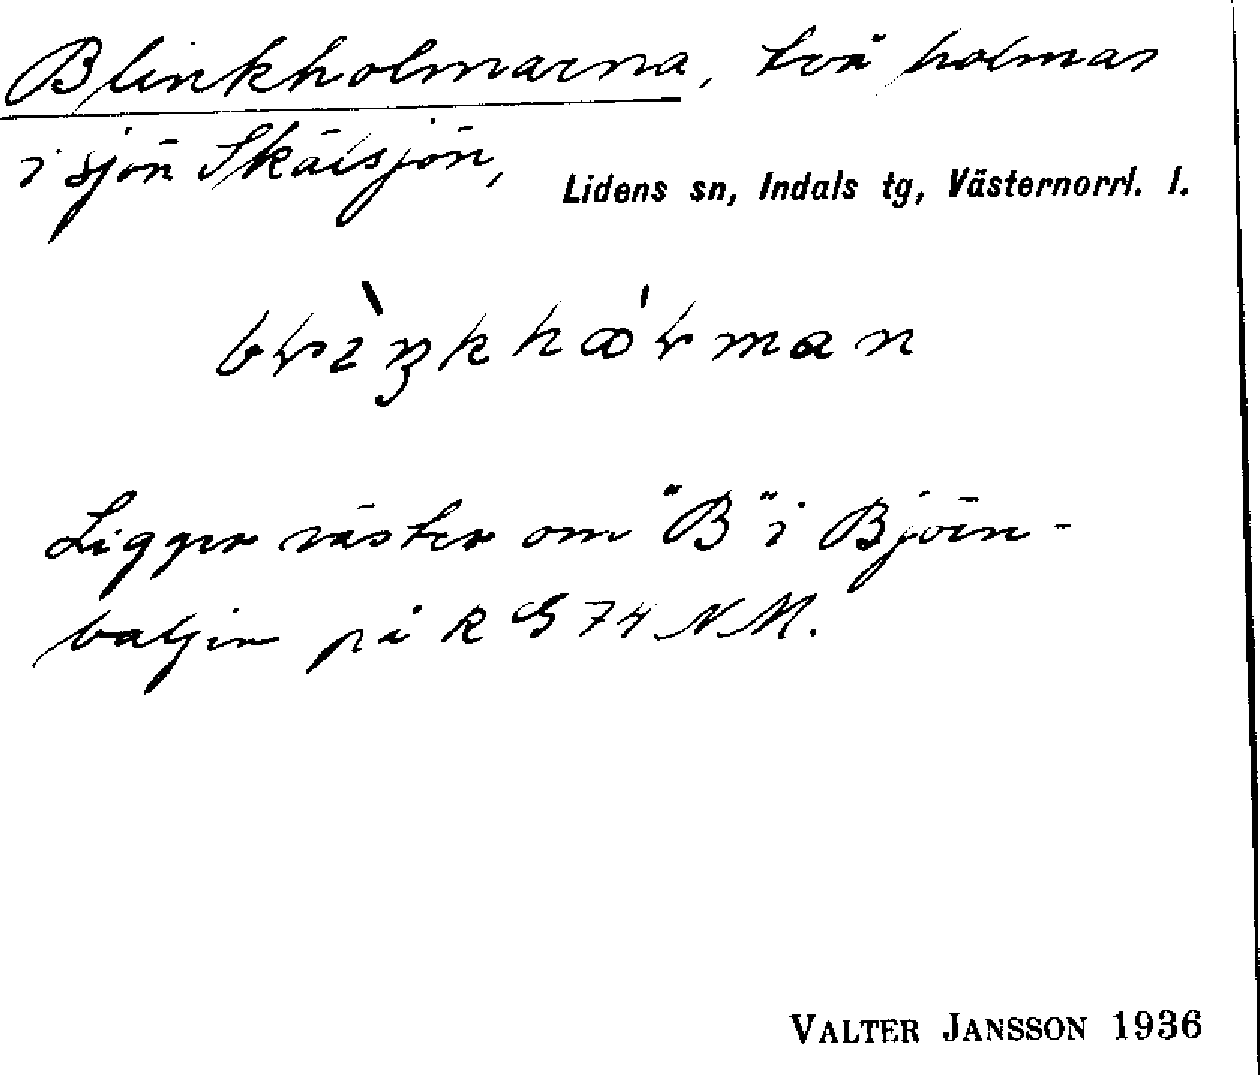 Blinkholmarna, två holmar
i sjön Skälsjön,
Lidens sn, Indals tg, Västernorrl. l.
Ligger väster om "B" i Björn-
baljen på k G 74 NM.
VALTER JANSSON 1936